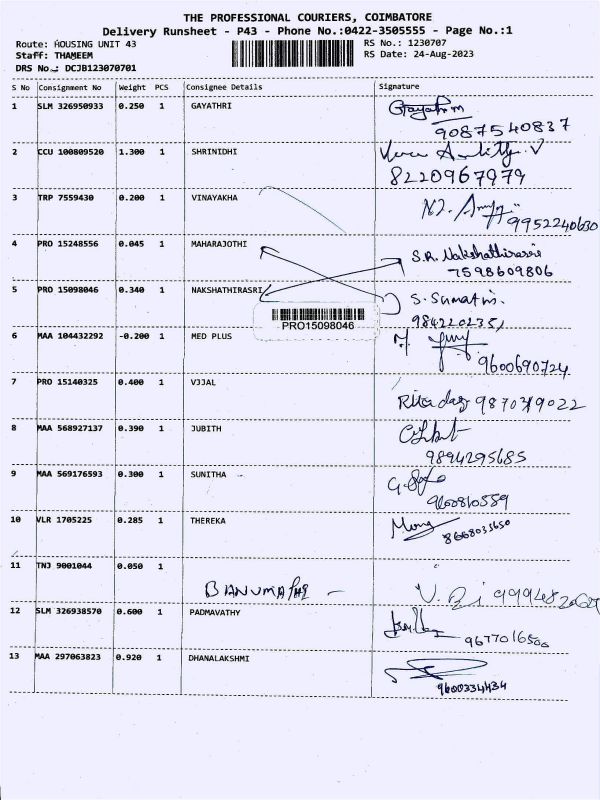 THE PROFESSIONAL COURIERS, COIMBATORE
Delivery Runsheet - P43 - Phone No.:0422-3505555 - Page No.:1
Route: HOUSING UNIT 43 RS No.: 1230707
Staff: THAMEEM RS Date: 24-Aug-2023
DRS No.: DCJB123070701
S No Consignment No Weight PCS Consignee Details Signature
1 SLM 326950933 0.250 1 GAYATHRI Gayathri m
9087540837
2 CCU 100809520 1.300 1 SHRINIDHI
8220967979
3 TRP 7559430 0.200 1 VINAYAKHA
9952240630
4 PRO 15248556 0.045 1 MAHARAJOTHI S.R. Nakshathirasri
7598609806
5 PRO 15098046 0.340 1 NAKSHATHIRASRI S. Sumathi.
PRO15098046
6 MAA 104432292 -0.200 1 MED PLUS
9600690724
7 PRO 15140325 0.400 1 VJJAL
8 MAA 568927137 0.390 1 JUBITH
9894295685
9 MAA 569176593 0.300 1 SUNITHA
9600810559
10 VLR 1705225 0.285 1 THEREKA
8668033650
11 TNJ 9001044 0.050 1
BANUMATHI -
12 SLM 326938570 0.600 1 PADMAVATHY
9677016500
13 MAA 297063823 0.920 1 DHANALAKSHMI
9600334434